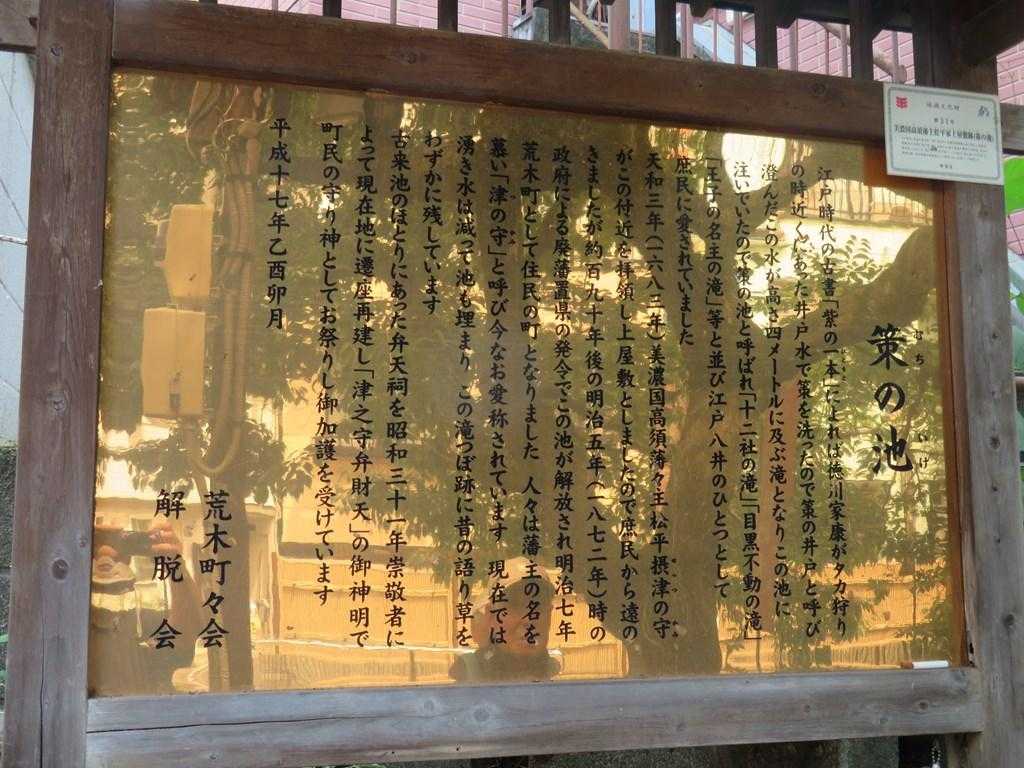 策の池
むち いけ
江戸時代の古書「紫の一本」によれば徳川家康がタカ狩り
の時近くにあった井戸水で策を洗ったので策の井戸と呼び
澄んだこの水が高さ四メートルに及ぶ滝となりこの池に
注いでいたので策の池と呼ばれ「十二社の滝」「目黒不動の滝」
「王子の名主の滝」等と並び江戸八井のひとつとして
庶民に愛されていました
天和三年(一六八三年)美濃国高須藩々主松平摂津の守
がこの付近を拝領し上屋敷としましたので庶民から遠の
きましたが約百九十年後の明治五年(一八七二年)時の
政府による廃藩置県の発令でこの池が解放され明治七年
荒木町として住民の町となりました 人々は藩主の名を
慕い「津の守」と呼び今なお愛称されています 現在では
湧き水は減って池も埋まり この滝つぼ跡に昔の語り草を
わずかに残しています
古来池のほとりにあった弁天祠を昭和三十一年崇敬者に
よって現在地に遷座再建し「津之守弁財天」の御神明で
町民の守り神としてお祭りし御加護を受けています
平成十七年乙酉卯月
荒木町々会
解脱会
地域文化財
第31号
美濃国高須藩主松平家上屋敷跡(策の池)